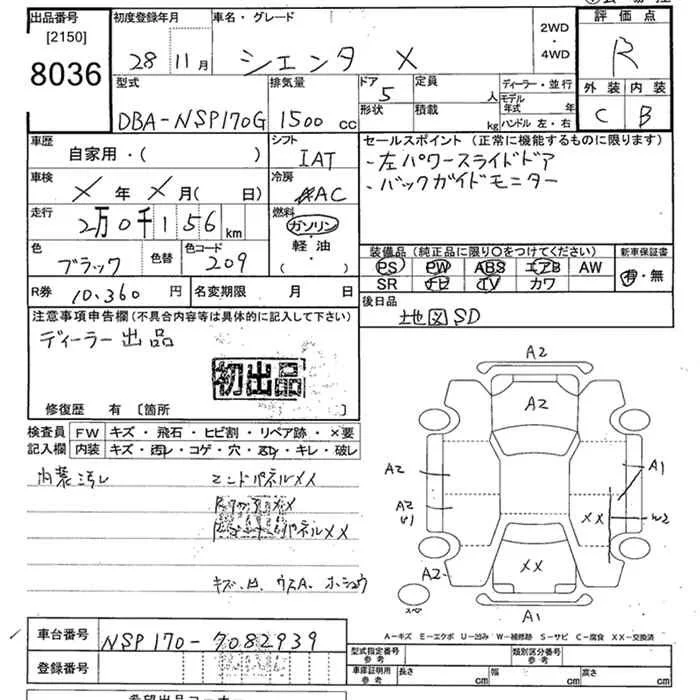 出品番号
[2150]
8036
初度登録年月
28 11月
車名・グレード
シエンタ X
2WD
・
4WD
評価点
R
外装 内装
C B
型式
DBA-NSP170G
排気量
1500 cc
ドア
5
形状
定員
人
積載
kg
ディーラー・並行
モデル
年式 年
ハンドル 左・右
車歴
自家用・( )
シフト
IAT
車検
X年 X月( 日)
冷房
AC
走行
2万0千156 km
燃料
ガソリン
・
軽油
( ・ )
色
ブラック
色替
色コード
209
R券
10,360 円
名変期限 月 日
セールスポイント(正常に機能するものに限ります)
・左パワースライドドア
・バックガイドモニター
装備品(純正品に限り〇をつけてください)
PS PW ABS エアB AW
SR ナビ TV カワ
新車保証書
有・無
後日品
地図 SD
注意事項申告欄(不具合内容等は具体的に記入して下さい)
ディーラー出品
初出品
修復歴 有 [箇所 ]
検査員
記入欄
FW キズ・飛石・ヒビ割・リペア跡・×要
内装 キズ・汚レ・コゲ・穴・スレ・キレ・破レ
内装汚レ
エンドパネルXX
キズ、凹、ウスA、ホシュウ
A2
A2
A2
A1
A2
XX
W2
XX
A2
スペア
A1
A－キズ E－エクボ U－凹み W－補修跡 S－サビ C－腐食 XX－交換済
車台番号
NSP170-7082939
登録番号
型式指定番号
参考
類別区分番号
参考
車庫証明用
参考
長さ cm
幅 cm
高さ cm